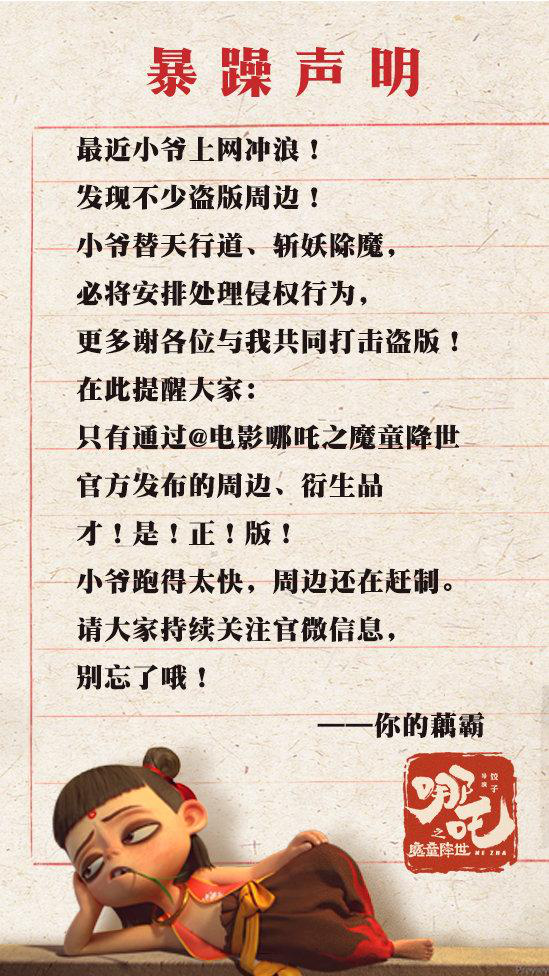 暴躁声明
最近小爷上网冲浪！
发现不少盗版周边！
小爷替天行道、斩妖除魔，
必将安排处理侵权行为，
更多谢各位与我共同打击盗版！
在此提醒大家：
只有通过@电影哪吒之魔童降世
官方发布的周边、衍生品
才！是！正！版！
小爷跑得太快，周边还在赶制。
请大家持续关注官微信息，
别忘了哦！
——你的藕霸
哪吒
导演
饺子
之
魔童降世
NE ZHA